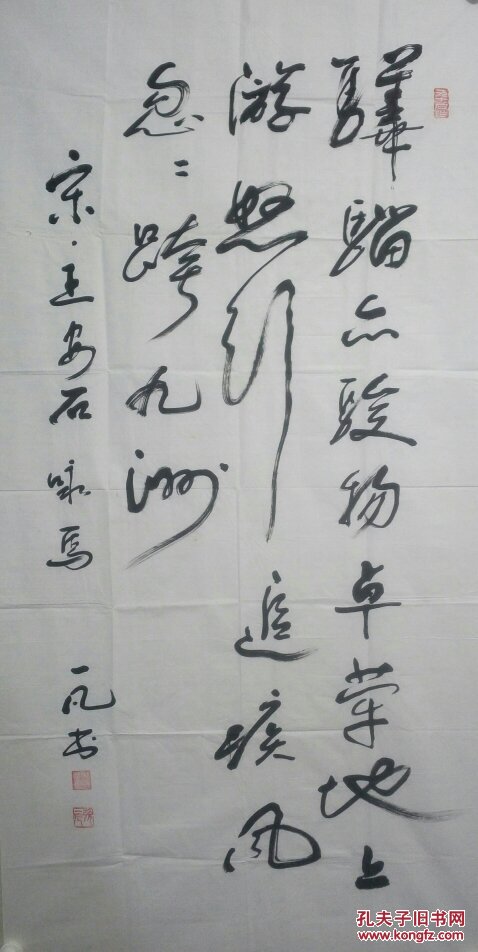 驊騮亦駿物卓荦地上
游怒行追疾风
忽〻跨九洲
宋·王安石 咏馬 一凡书
孔夫子旧书网
www.kongfz.com